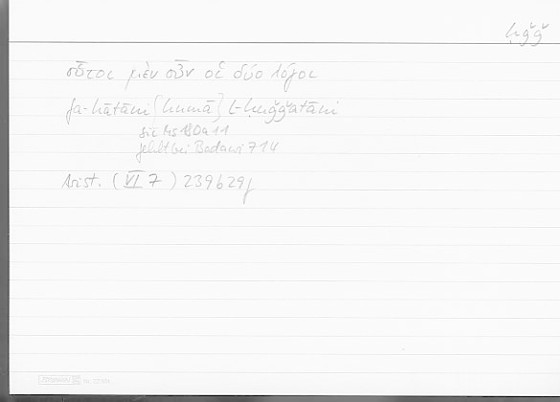 ḥǧǧ
οὗτοι μὲν οὖν οἱ δύο λόγοι
fa-hātāni [humā] l-ḥuǧǧatāni
sic Ms 180a11
fehlt bei Badawi 714
Arist. (VI 7) 239b29f